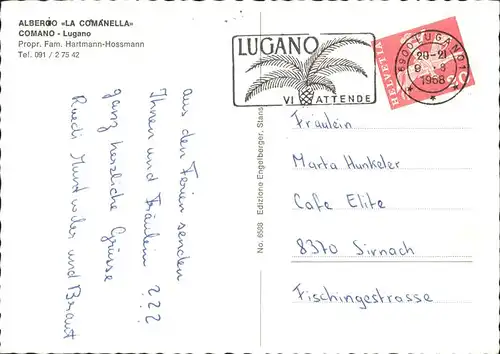 ALBERGO «LA COMANELLA»
COMANO - Lugano
Propr. Fam. Hartmann-Hossmann
Tel. 091 / 2 75 42
LUGANO
VI ATTENDE
6900 LUGANO 1
20-21
1968
HELVETIA
aus den Ferien senden
Ihnen und Fräulein ???
ganz herzliche Grüsse
Ruedi und Braut
No. 6508 Edizione Engelberger, Stans
Fräulein
Marta Hunkeler
Cafe Elite
8370 Sirnach
Fischingestrasse